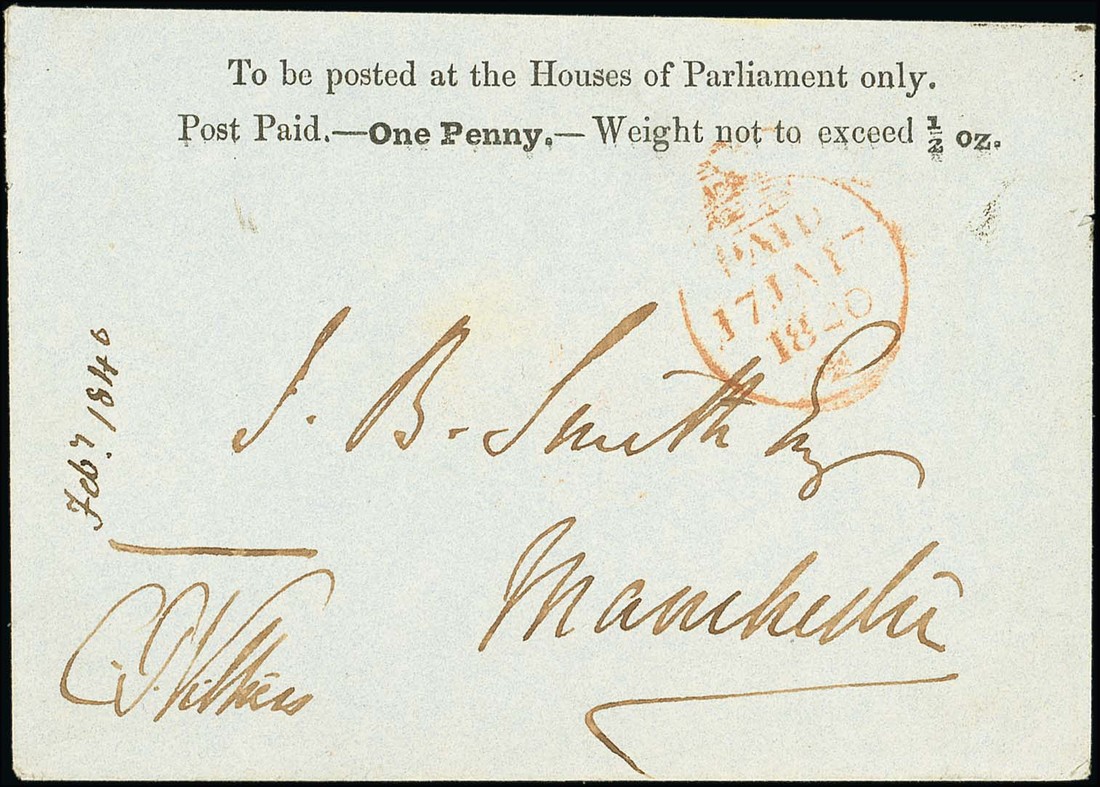 To be posted at the Houses of Parliament only.
Post Paid.—One Penny.—Weight not to exceed ½ oz.
PAID
17 JA 17
1840
J. B. Smith Esq
Manchester
Feby 1840
C. P. Villiers